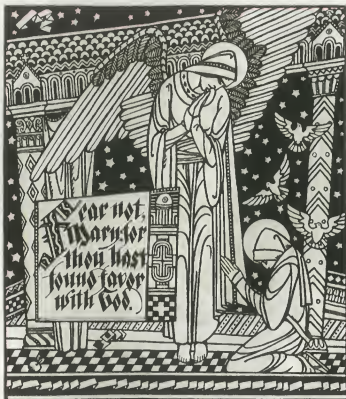 Fear not,
Mary, for
thou hast
found favor
with God.